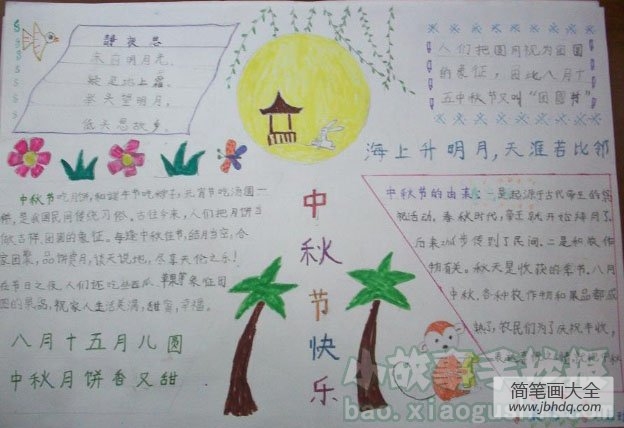 静夜思
床前明月光,
疑是地上霜,
举头望明月,
低头思故乡。
人们把圆月视为团圆
的象征,因此八月十
五中秋节又叫“团圆节”
海上升明月,天涯若比邻
中秋节吃月饼,和端午节吃粽子,元宵节吃汤圆一
样,是我国民间传统习俗。古往今来,人们把月饼当
做吉祥、团圆的象征。每逢中秋佳节,皓月当空,合
家团聚,品饼赏月,谈天说地,尽享天伦之乐!
在节日之夜,人们还吃些西瓜、苹果等来征团
圆的果品,祝家人生活美满,甜蜜,幸福。
八月十五月儿圆
中秋月饼香又甜
中秋节快乐
中秋节的由来:一是起源于古代帝王的祭
祀活动。春秋时代,帝王就开始拜月了。
后来逐步传到了民间。二是和农作
物有关。秋天是收获的季节,八月
中秋,各种农作物和果品都成
熟了,农民们为了庆祝丰收,
小故事手抄报
bao.xiaogushi.com
简笔画大全
www.jbhdq.com